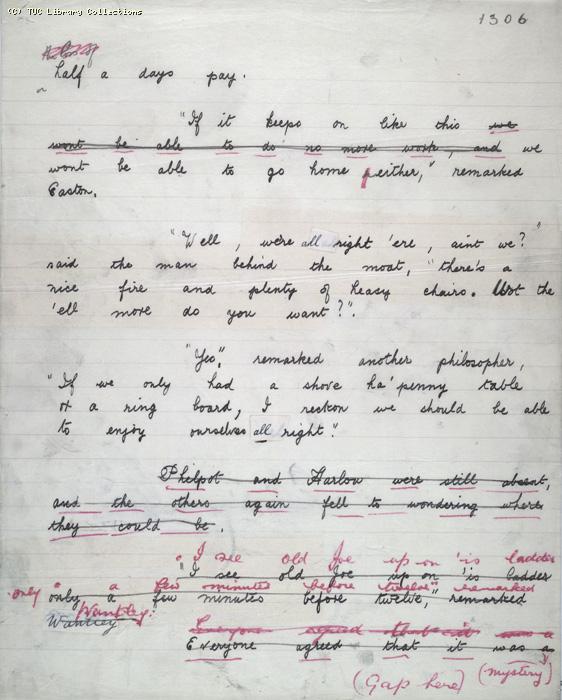 (C) TUC Library Collections
1306
half a days pay.
"If it keeps on like this we
wont be able to do no more work, and we
wont be able to go home neither," remarked
Easton.
"Well, we're all right 'ere, aint we?"
said the man behind the moat, "there's a
nice fire and plenty of heasy chairs. Wot the
'ell more do you want?".
"Yes", remarked another philosopher,
"If we only had a shove ha'penny table
or a ring board, I reckon we should be able
to enjoy ourselves all right."
Philpot and Harlow were still absent,
and the others again fell to wondering where
they could be.
"I see old Joe up on 'is ladder
"I see old Joe up on 'is ladder
only a few minutes before twelve," remarked
only a few minutes before twelve," remarked
Wantley:
Wantley
Everyone agreed that it was a
Everyone agreed that it was a
(Gap here) (mystery)